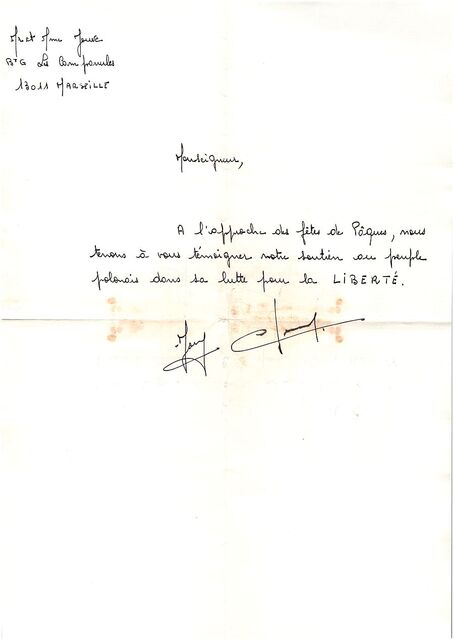 Mr et Mme
Bt G Les Campanules
13011 MARSEILLE
Monseigneur,
A l'approche des fêtes de Pâques, nous
tenons à vous témoigner notre soutien au peuple
polonais dans sa lutte pour la LIBERTÉ.